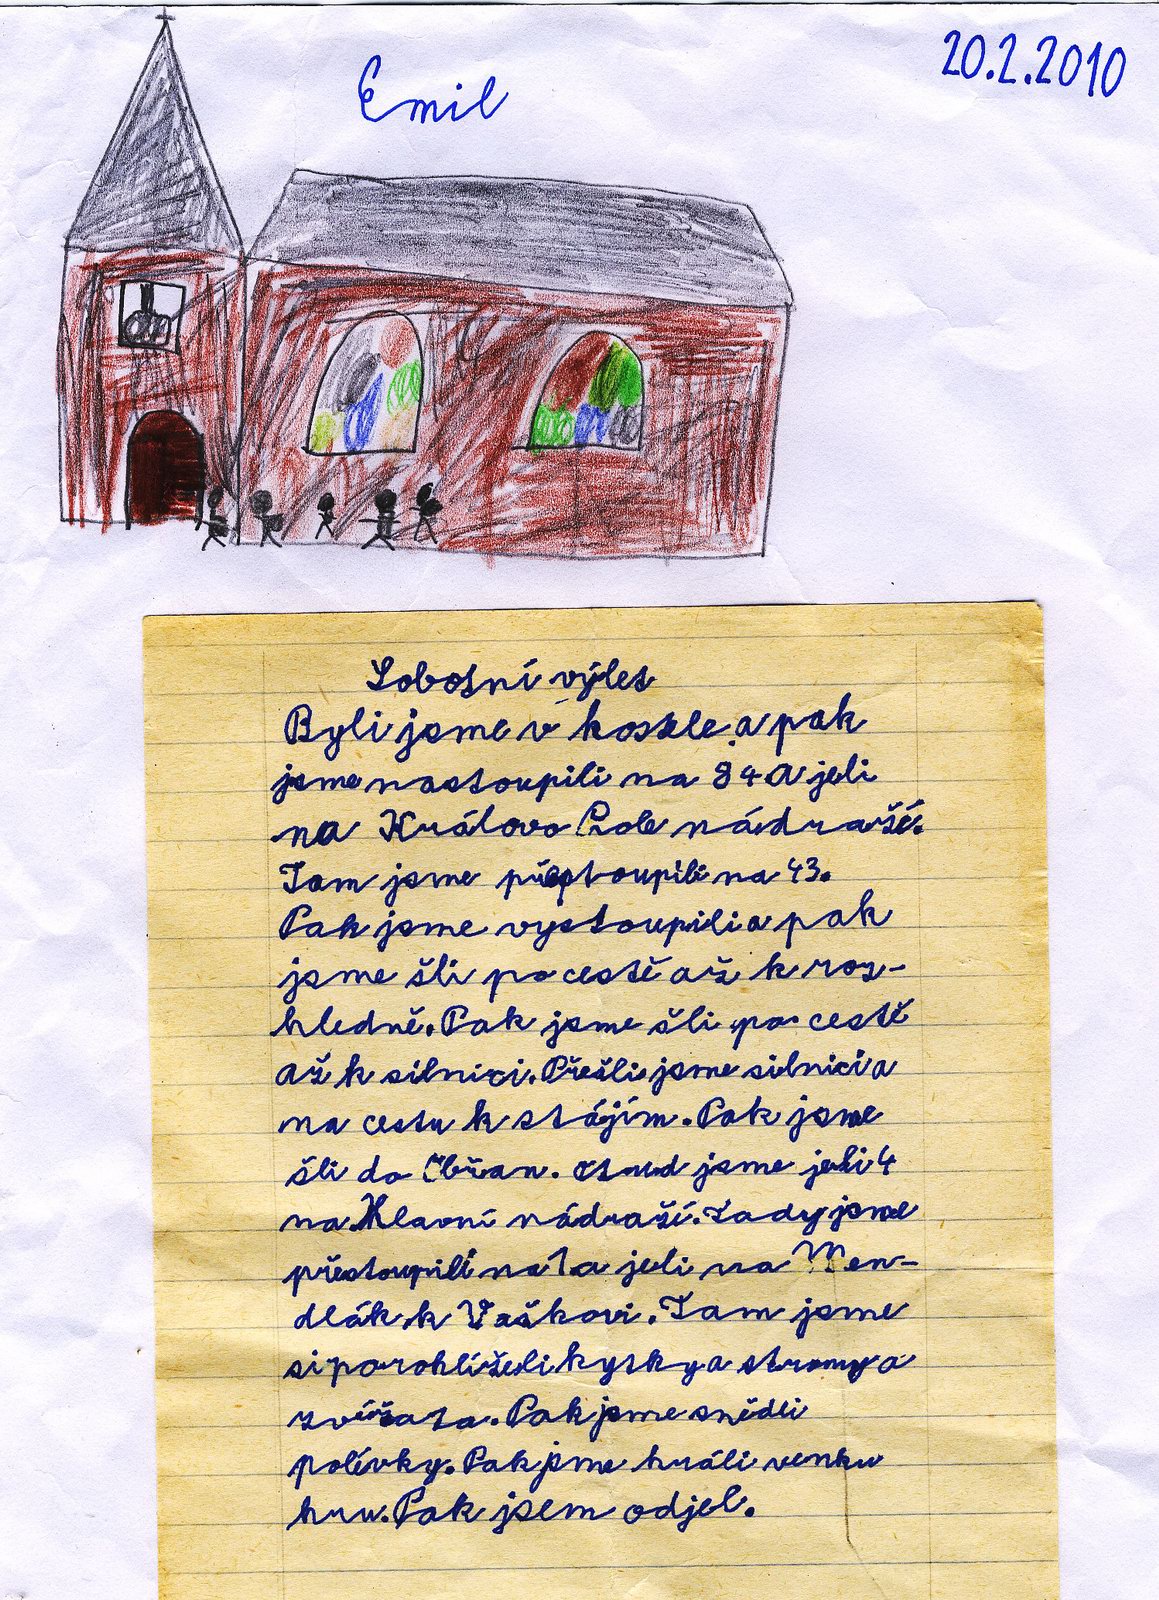 Emil
20.2.2010
Sobotní výlet
Byli jsme v kostele a pak
jsme nastoupili na 84 a jeli
na Královo Pole nádraží.
Tam jsme přeptoupili na 43.
Pak jsme vystoupili a pak
jsme šli po cestě až k roz-
hledně. Pak jsme šli po cestě
až k silnici. Přešli jsme silnici a
na cestu k stájím. Pak jsme
šli do Obřan. Otud jsme jeli 4
na Hlavní nádraží. Tady jsme
přestoupili na 1 a jeli na Men-
dlák k Vaškovi. Tam jsme
si porohlíželi kytky a stromy a
zvířata. Pak jsme snědli
polívky. Pak jsme hráli venku
hru. Pak jsem odjel.